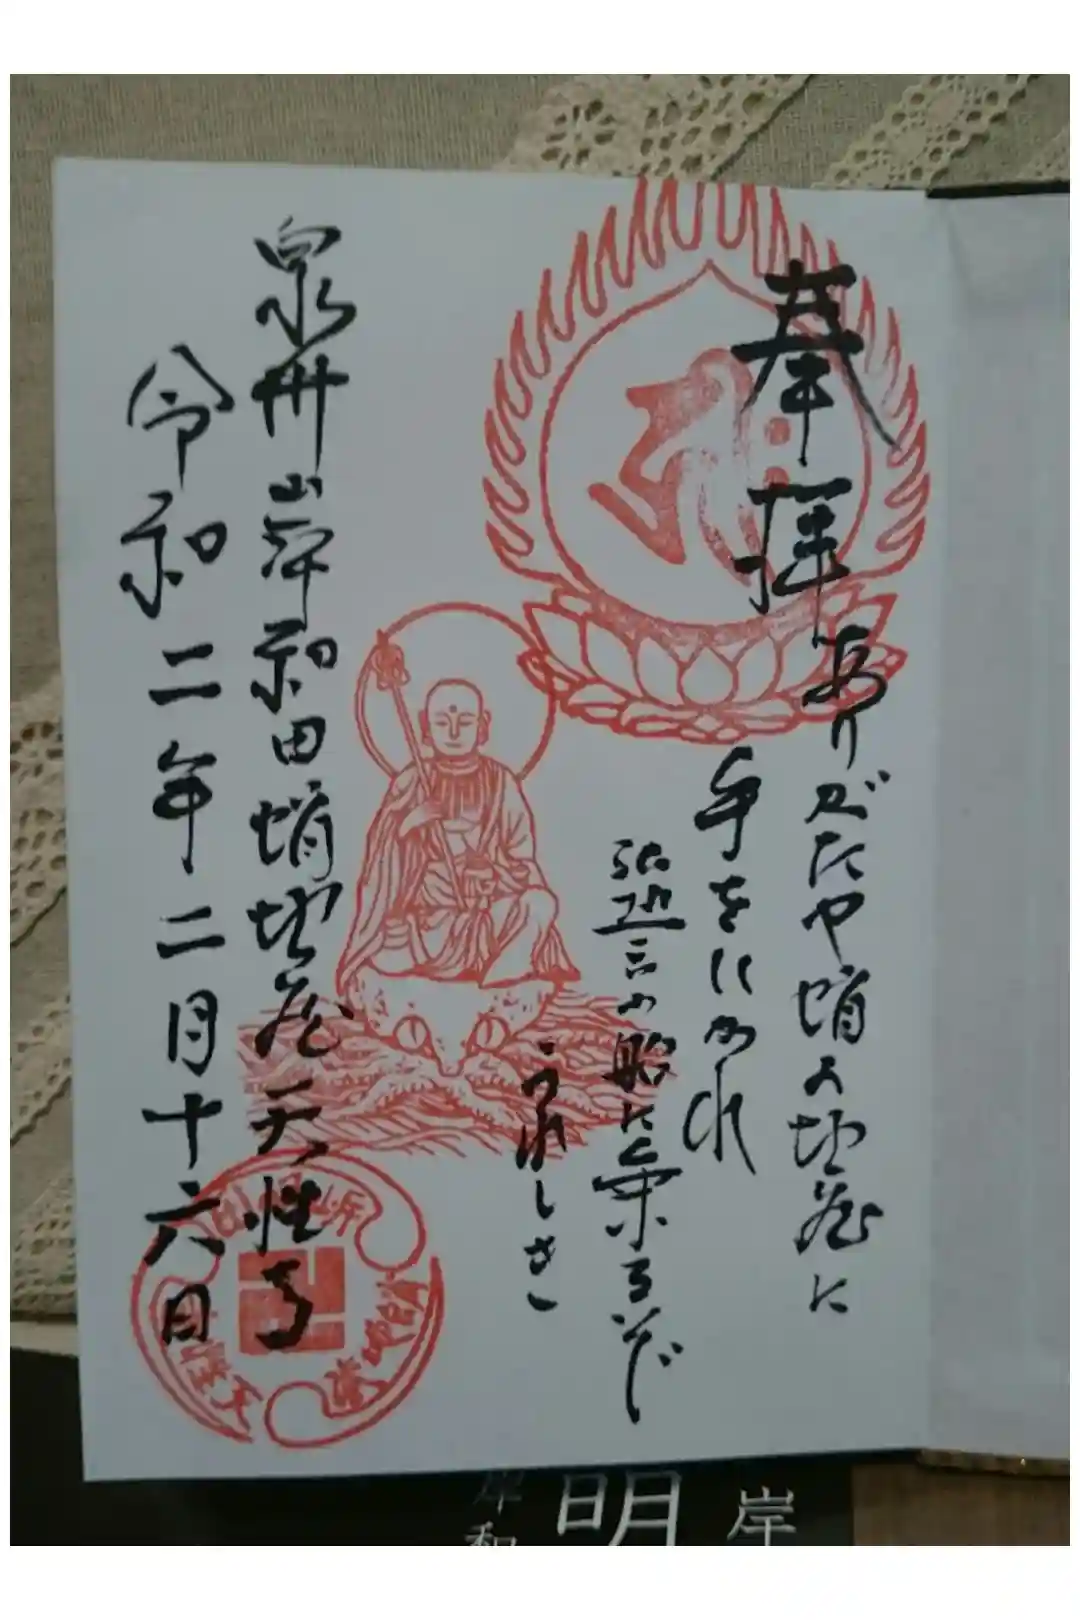 奉拝
ありがたや蛸の地蔵に
手をひかれ
弘誓の船に乗るぞ
うれしき
泉州岸和田蛸地蔵天性寺
令和二年二月十六日
明
岸
岸和